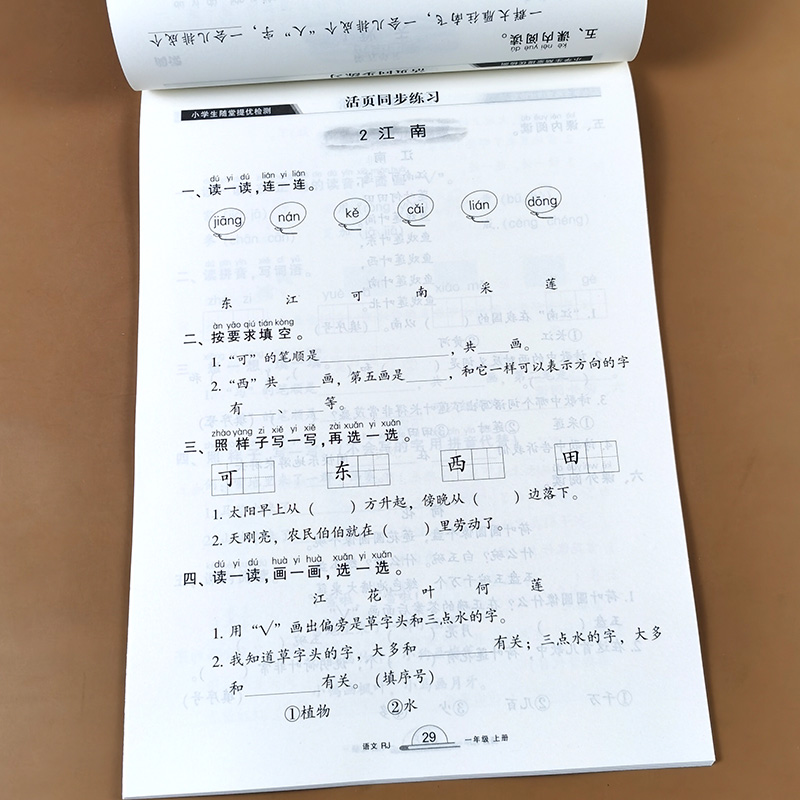 一群大雁往南飞，一会儿排成个“人”字，一会儿排成个
kè nèi yuè dú
五、课内阅读。
小学生随堂提优检测
活页同步练习
2 江南
dú yi dú lián yi lián
一、读一读，连一连。
jiāng nán kě cǎi lián dōng
东 江 可 南 采 莲
àn yāo qiú tián kòng
二、按要求填空。
1. “可”的笔顺是________，共____画。
2. “西”共____画，第五画是____，和它一样可以表示方向的字
有____、____等。
zhào yàng zi xiě yi xiě zài xuǎn yi xuǎn
三、照样子写一写，再选一选。
可 东 西 田
1. 太阳早上从（ ）方升起，傍晚从（ ）边落下。
2. 天刚亮，农民伯伯就在（ ）里劳动了。
dú yi dú huà yi huà xuǎn yi xuǎn
四、读一读，画一画，选一选。
江 花 叶 何 莲
1. 用“√”画出偏旁是草字头和三点水的字。
2. 我知道草字头的字，大多和________有关；三点水的字，大多
和________有关。（填序号）
①植物 ②水
语文 RJ 29 一年级 上册